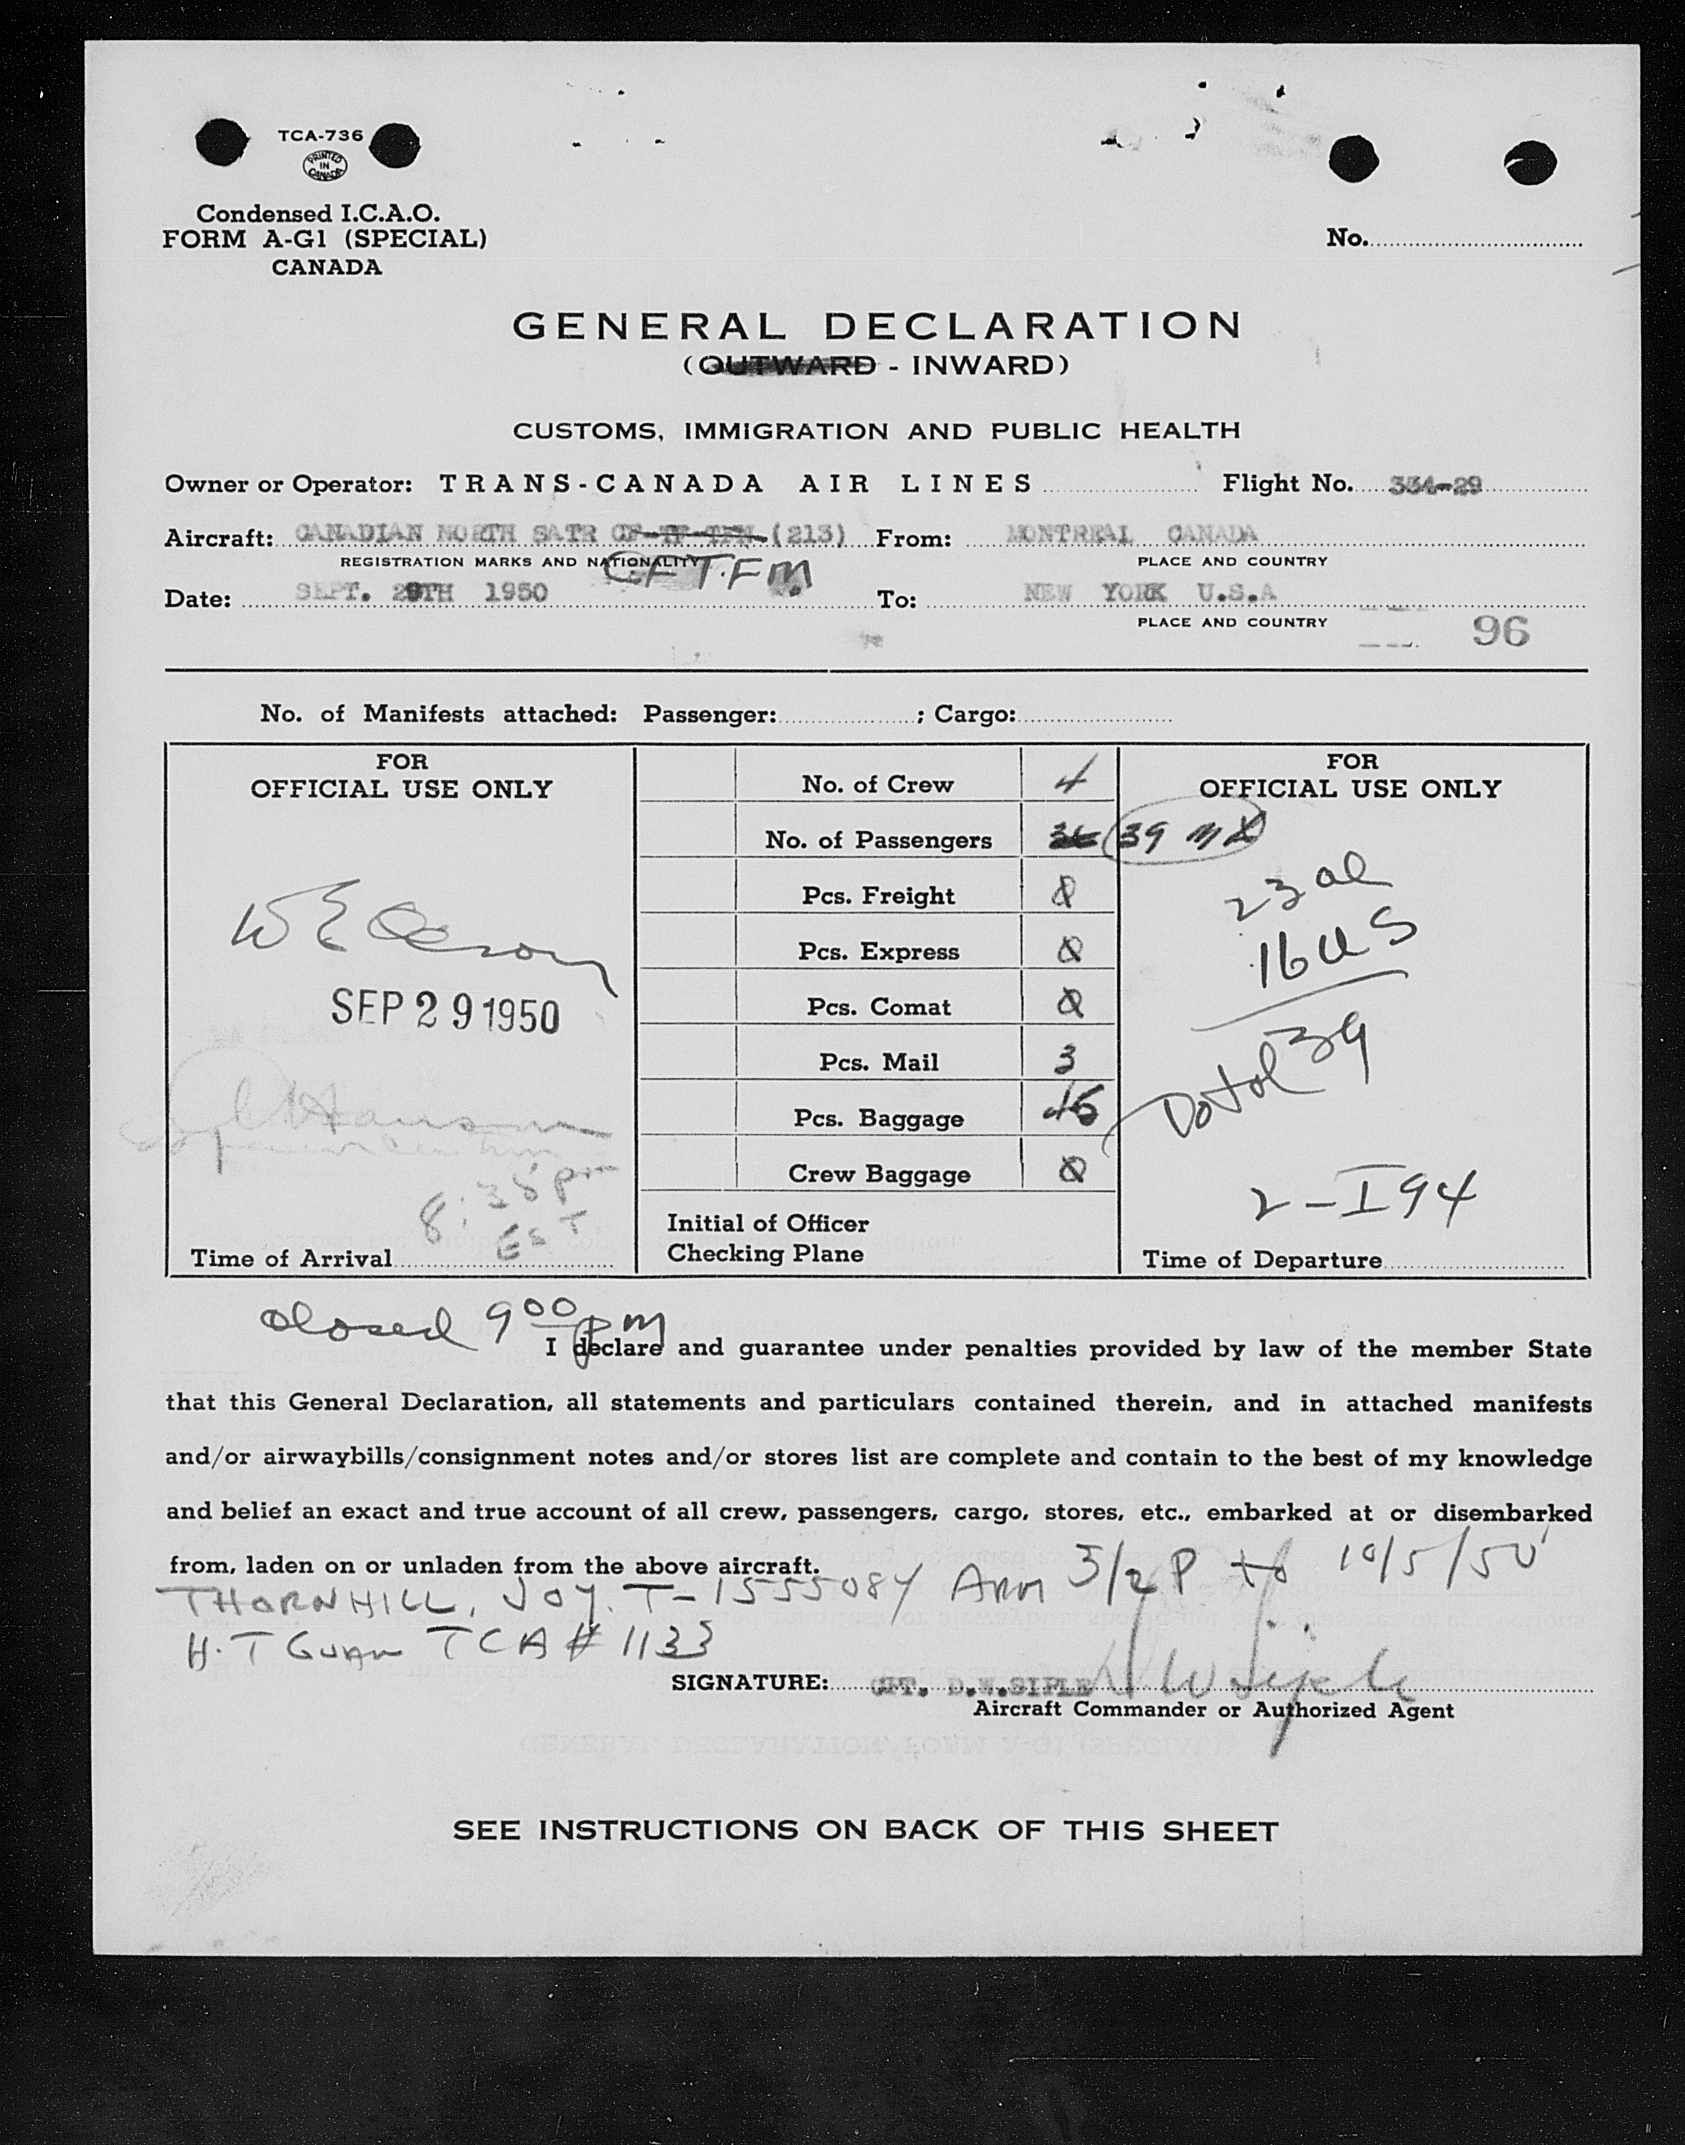 TCA-736
PRINTED
IN
CANADA
Condensed I.C.A.O.
FORM A-G1 (SPECIAL)
CANADA
No.
GENERAL DECLARATION
(OUTWARD - INWARD)
CUSTOMS, IMMIGRATION AND PUBLIC HEALTH
Owner or Operator: TRANS-CANADA AIR LINES Flight No. 334-29
Aircraft: CANADIAN NORTH SATR CF-TF-TFM (213) From: MONTREAL CANADA
REGISTRATION MARKS AND NATIONALITY PLACE AND COUNTRY
CFT.FM
Date: SEPT. 29TH 1950 To: NEW YORK U.S.A
PLACE AND COUNTRY
96
No. of Manifests attached: Passenger: ; Cargo:
FOR
OFFICIAL USE ONLY
W E
SEP 29 1950
8:38 pm
EST
Time of Arrival
No. of Crew 4
No. of Passengers 36 39
Pcs. Freight 0
Pcs. Express 0
Pcs. Comat 0
Pcs. Mail 3
Pcs. Baggage 45
Crew Baggage 0
Initial of Officer
Checking Plane
FOR
OFFICIAL USE ONLY
23 al
16 US
Total 39
2-I94
Time of Departure
closed 9 00 pm
I declare and guarantee under penalties provided by law of the member State
that this General Declaration, all statements and particulars contained therein, and in attached manifests
and/or airwaybills/consignment notes and/or stores list are complete and contain to the best of my knowledge
and belief an exact and true account of all crew, passengers, cargo, stores, etc., embarked at or disembarked
from, laden on or unladen from the above aircraft.
THORNHILL, JOY. T-1555084 Arm 3/2 P to 10/5/50
H.T TCA # 1133
SIGNATURE: CPT. D.W.SIPLE D W Siple
Aircraft Commander or Authorized Agent
SEE INSTRUCTIONS ON BACK OF THIS SHEET